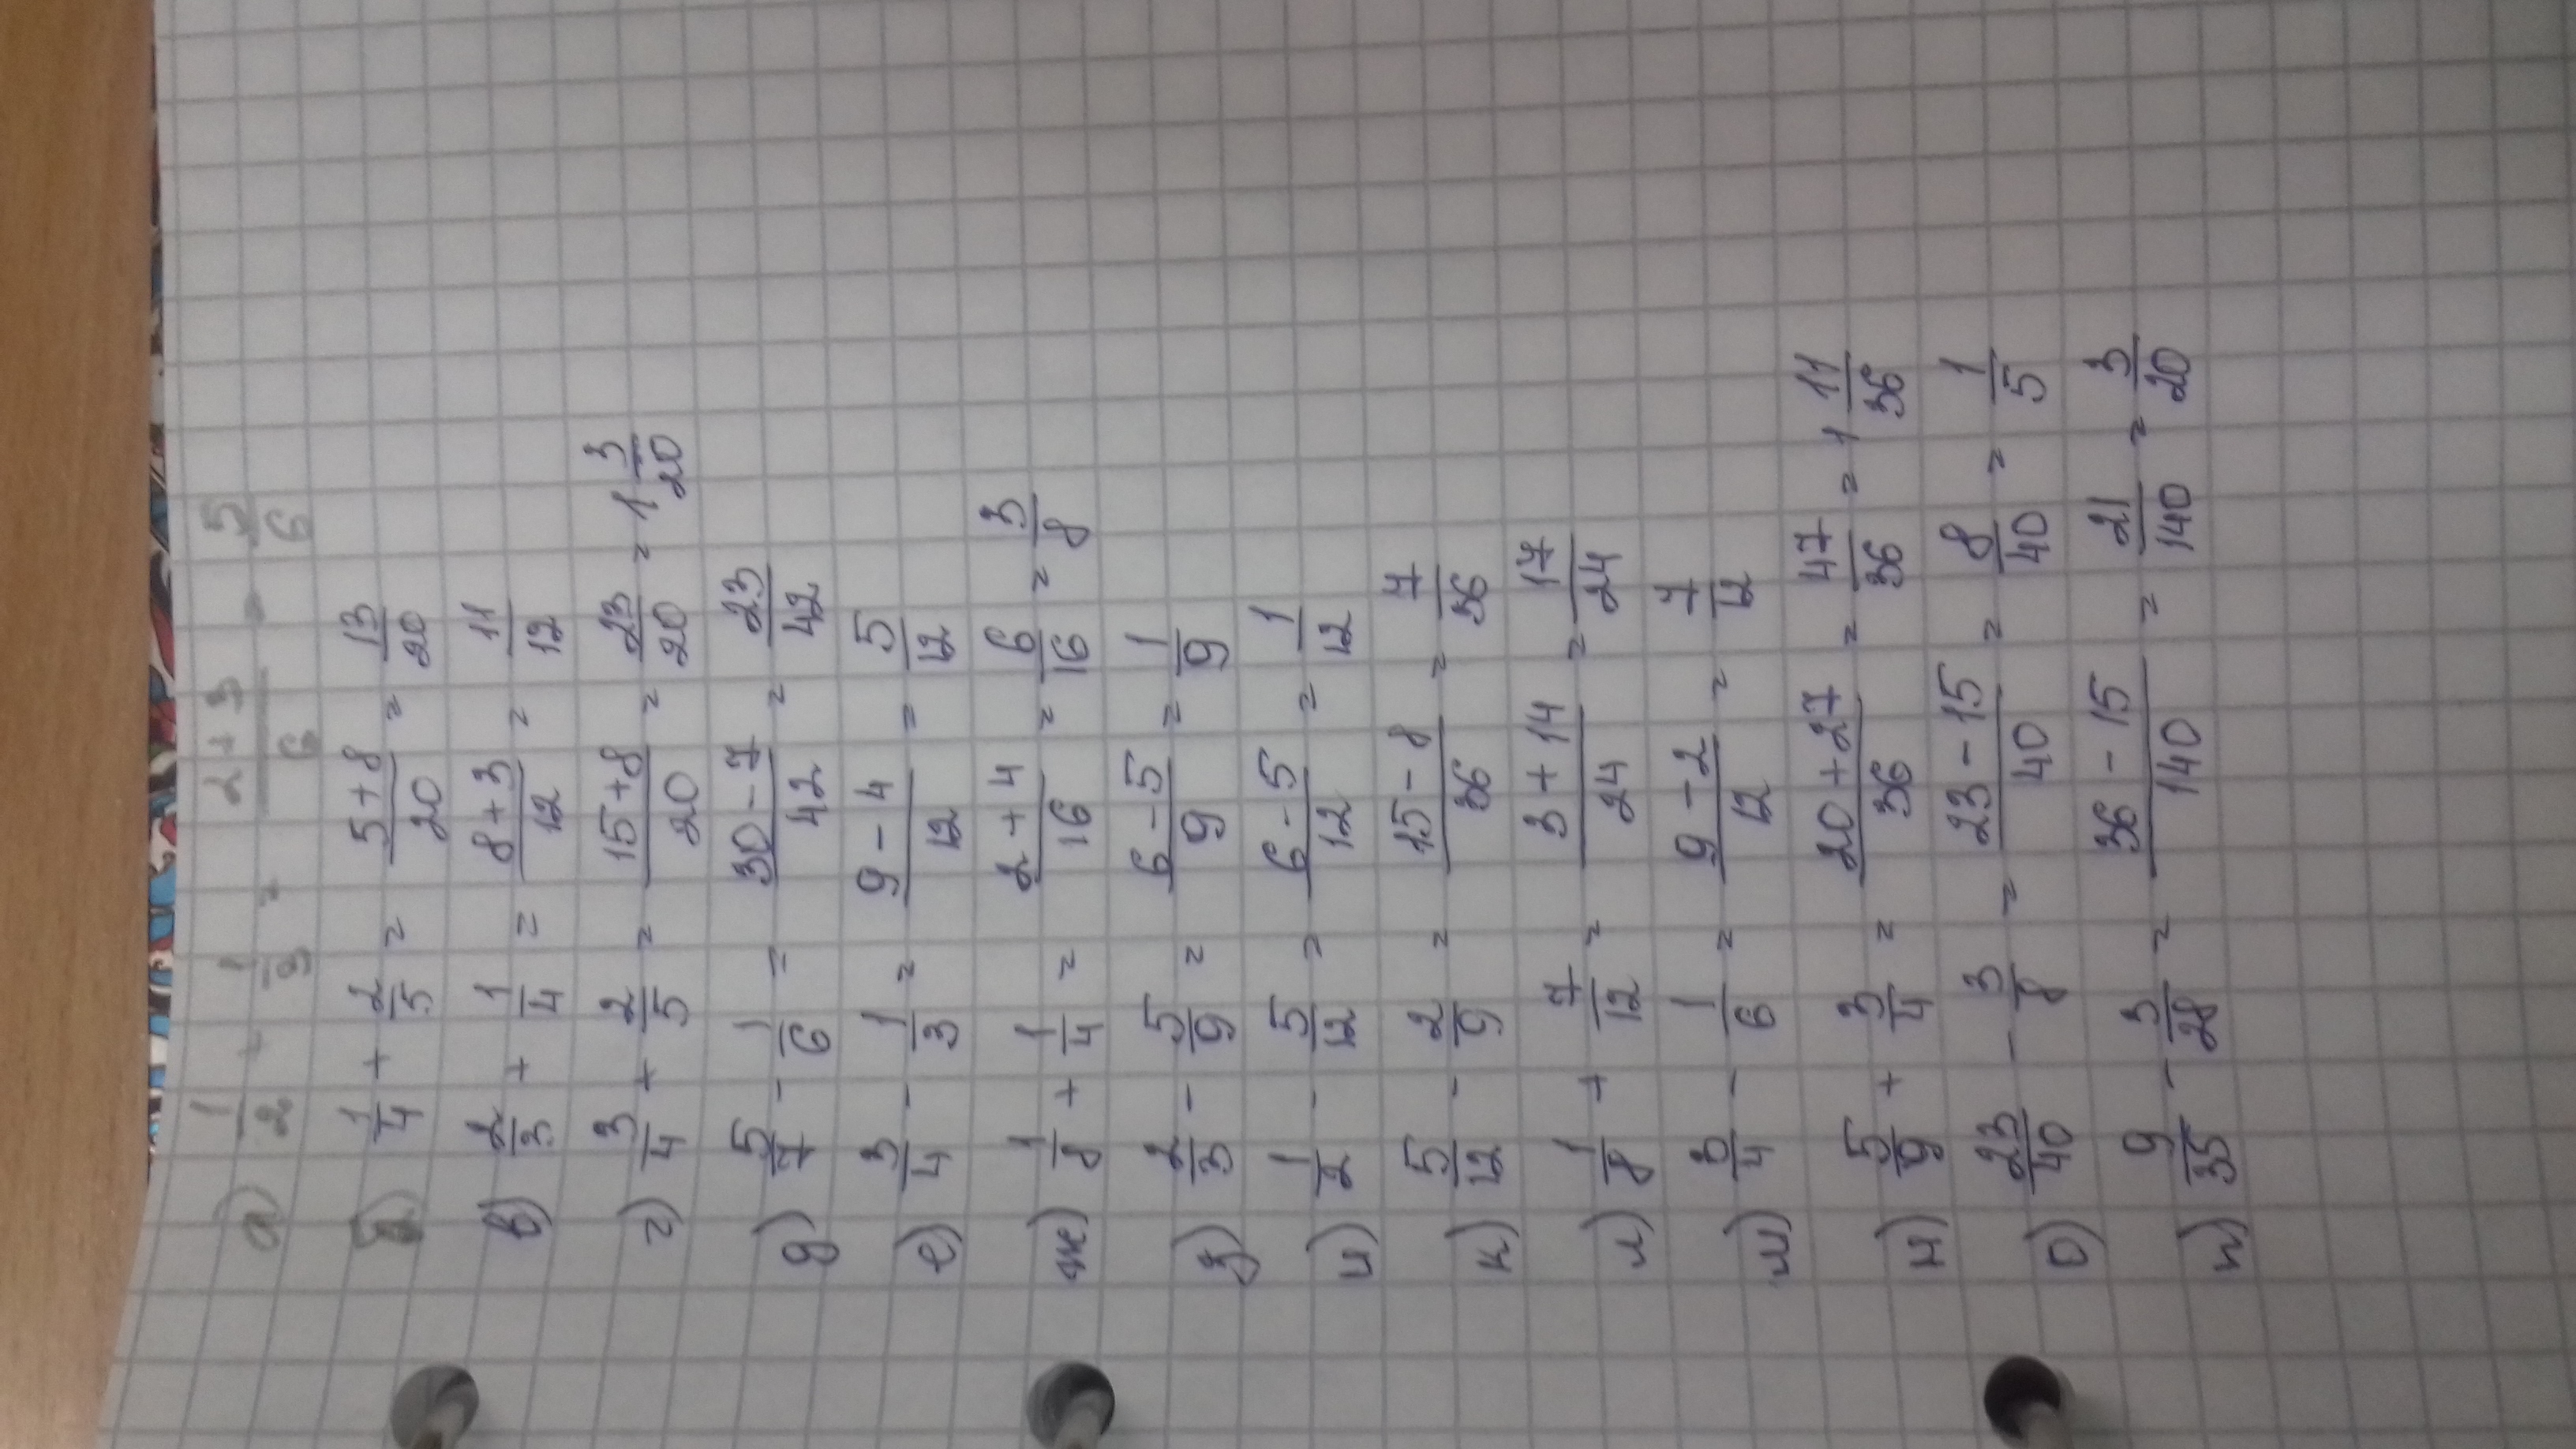 а) 1/2 + 1/3 = (2+3)/6 = 5/6
б) 1/4 + 2/5 = (5+8)/20 = 13/20
в) 2/3 + 1/4 = (8+3)/12 = 11/12
г) 3/4 + 2/5 = (15+8)/20 = 23/20 = 1 3/20
д) 5/7 - 1/6 = (30-7)/42 = 23/42
е) 3/4 - 1/3 = (9-4)/12 = 5/12
ж) 1/8 + 1/4 = (2+4)/16 = 6/16 = 3/8
з) 2/3 - 5/9 = (6-5)/9 = 1/9
и) 1/2 - 5/12 = (6-5)/12 = 1/12
к) 5/12 - 2/9 = (15-8)/36 = 7/36
л) 1/8 + 7/12 = (3+14)/24 = 17/24
м) 3/4 - 1/6 = (9-2)/12 = 7/12
н) 5/9 + 3/4 = (20+27)/36 = 47/36 = 1 11/36
о) 23/40 - 3/8 = (23-15)/40 = 8/40 = 1/5
п) 9/35 - 3/28 = (36-15)/140 = 21/140 = 3/20